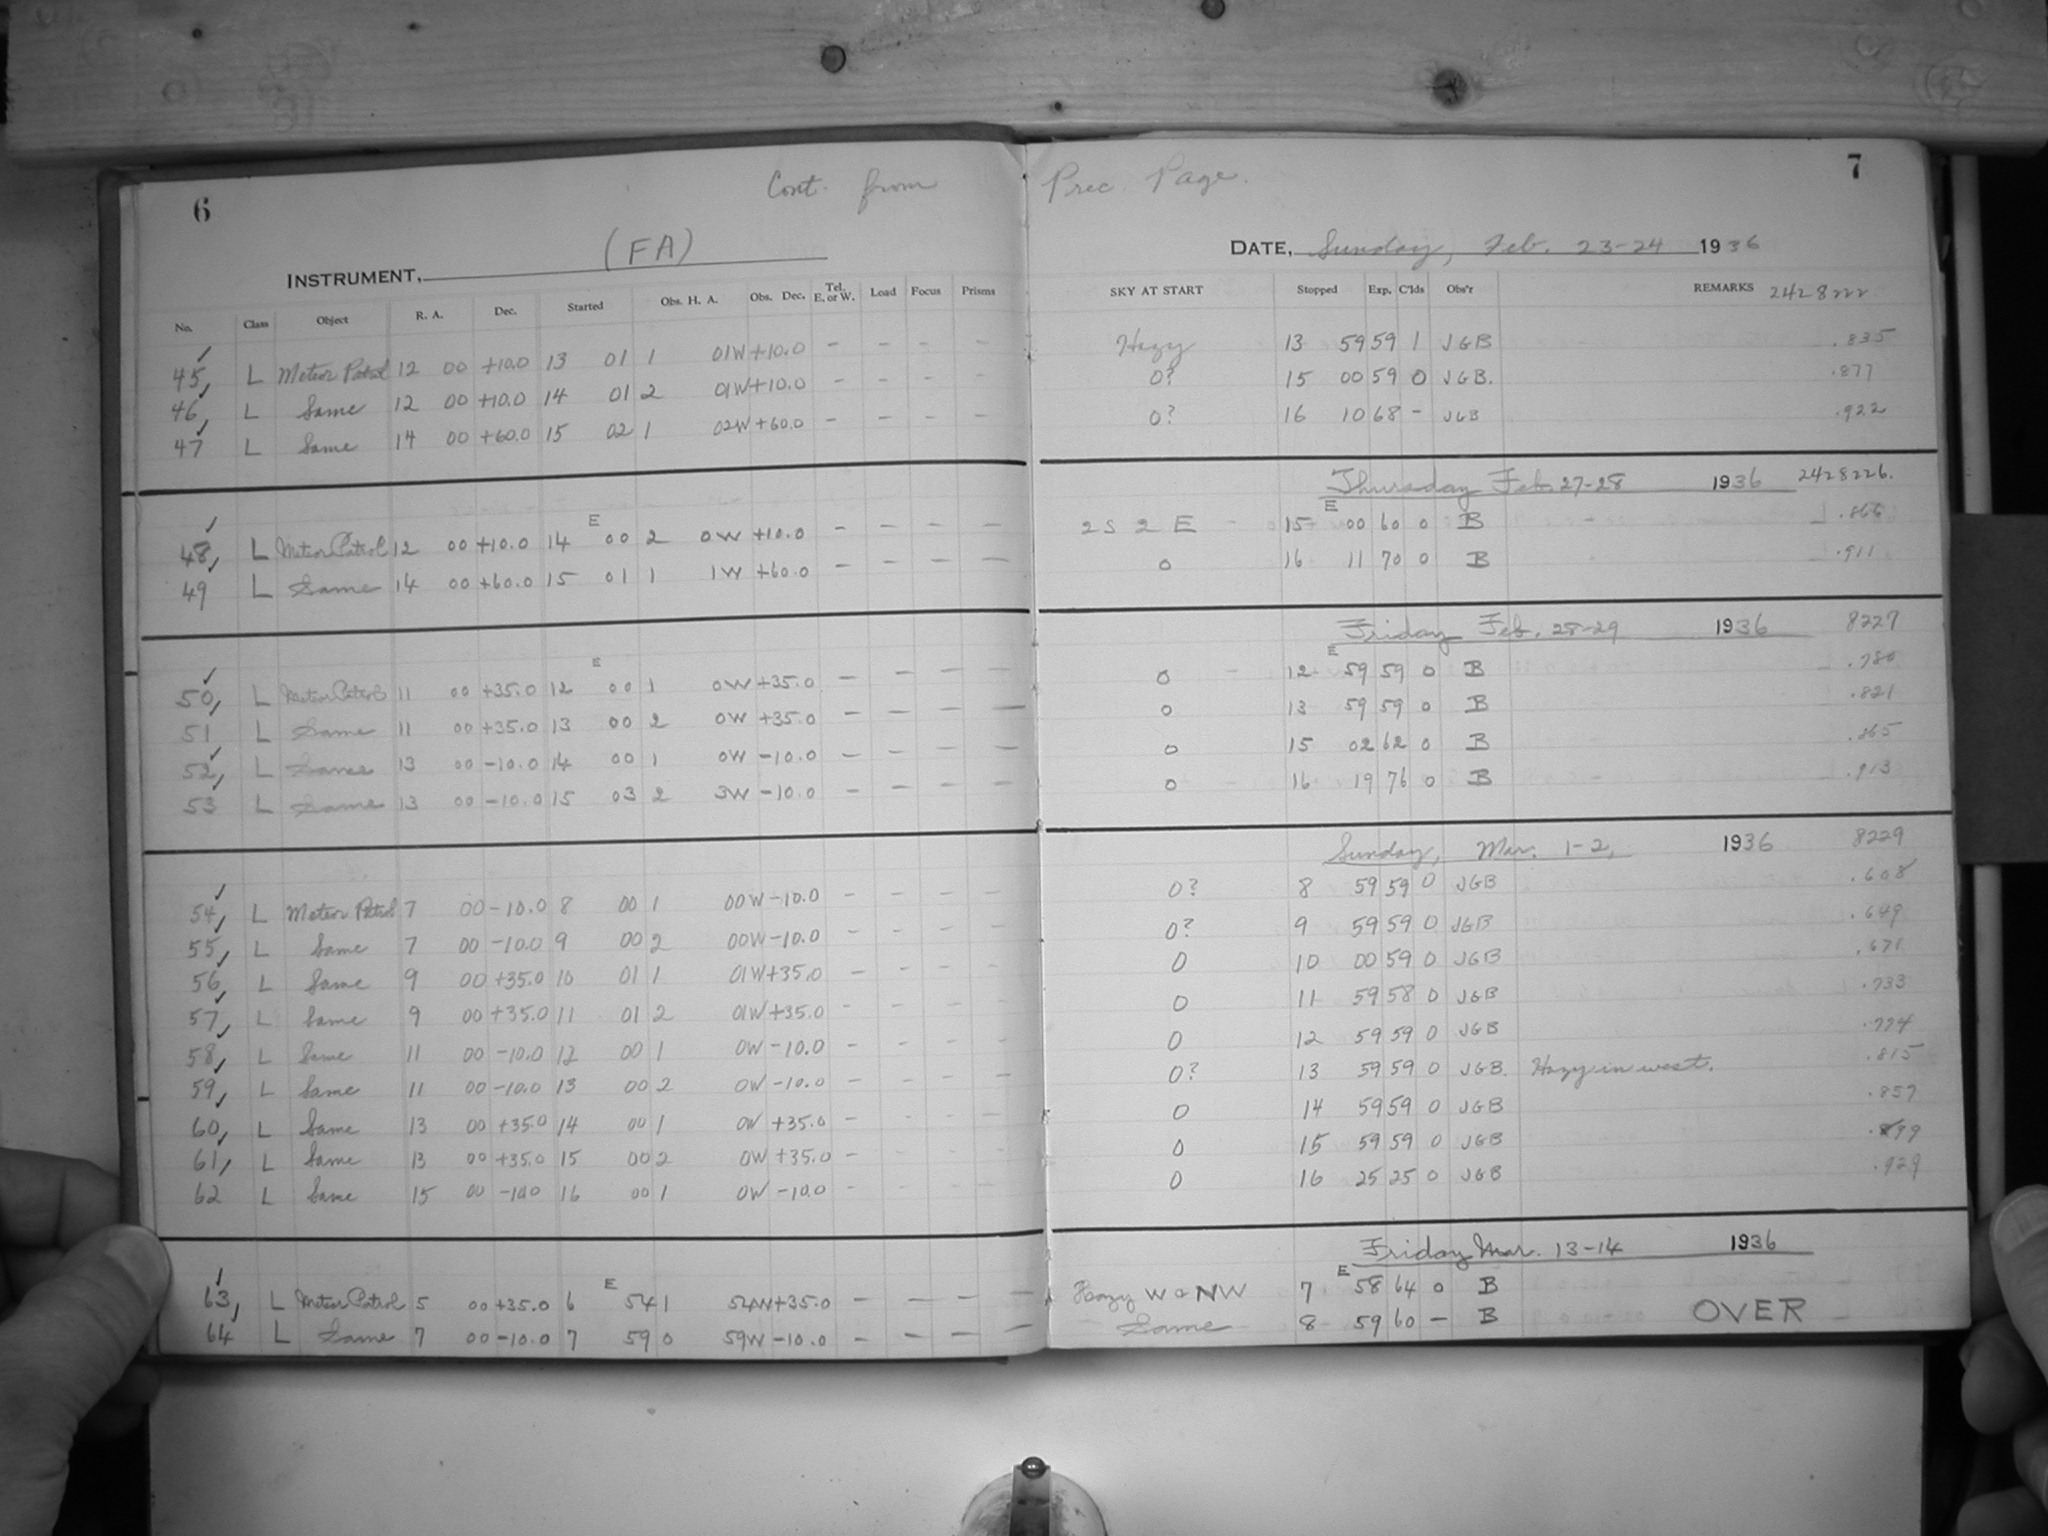 6 Cont. from Prec. Page. 7
INSTRUMENT, (FA) DATE, Sunday, Feb. 23-24 1936
No. Class Object R. A. Dec. Started Obs. H. A. Obs. Dec. Tel. E. or W. Load Focus Prisms SKY AT START Stopped Exp. C'lds Obs'r REMARKS 2428222
45, L Meteor Patrol 12 00 +10.0 13 01 1 01W +10.0 - - - - Hazy 13 59 59 1 JGB .835
46, L Same 12 00 +10.0 14 01 2 01W +10.0 - - - - 0? 15 00 59 0 JGB. .877
47 L Same 14 00 +60.0 15 02 1 02W +60.0 - - - - 0? 16 10 68 - JGB .922
Thursday Feb. 27-28 1936 2428226.
48, L Meteor Patrol 12 00 +10.0 14 E 00 2 0W +10.0 - - - - 2 S 2 E 15 E 00 60 0 B .866
49 L Same 14 00 +60.0 15 01 1 1W +60.0 - - - - 0 16 11 70 0 B .911
Friday Feb. 28-29 1936 8227
50, L Meteor Patrol 11 00 +35.0 12 E 00 1 0W +35.0 - - - - 0 12 E 59 59 0 B .780
51 L Same 11 00 +35.0 13 00 2 0W +35.0 - - - - 0 13 59 59 0 B .821
52, L Same 13 00 -10.0 14 00 1 0W -10.0 - - - - 0 15 02 62 0 B .865
53 L Same 13 00 -10.0 15 03 2 3W -10.0 - - - - 0 16 19 76 0 B .913
Sunday, Mar. 1-2, 1936 8229
54, L Meteor Patrol 7 00 -10.0 8 00 1 00W -10.0 - - - - 0? 8 59 59 0 JGB .608
55, L Same 7 00 -10.0 9 00 2 00W -10.0 - - - - 0? 9 59 59 0 JGB .649
56, L Same 9 00 +35.0 10 01 1 01W +35.0 - - - - 0 10 00 59 0 JGB .671
57, L Same 9 00 +35.0 11 01 2 01W +35.0 - - - - 0 11 59 58 0 JGB .733
58, L Same 11 00 -10.0 12 00 1 0W -10.0 - - - - 0 12 59 59 0 JGB .774
59, L Same 11 00 -10.0 13 00 2 0W -10.0 - - - - 0? 13 59 59 0 JGB. Hazy in west. .815
60, L Same 13 00 +35.0 14 00 1 0W +35.0 - - - - 0 14 59 59 0 JGB .857
61, L Same 13 00 +35.0 15 00 2 0W +35.0 - - - - 0 15 59 59 0 JGB .899
62 L Same 15 00 -10.0 16 00 1 0W -10.0 - - - - 0 16 25 25 0 JGB .929
Friday Mar. 13-14 1936
63, L Meteor Patrol 5 00 +35.0 6 E 54 1 54W +35.0 - - - - Hazy W & NW 7 E 58 64 0 B
64 L Same 7 00 -10.0 7 59 0 59W -10.0 - - - - Same 8 59 60 - B OVER